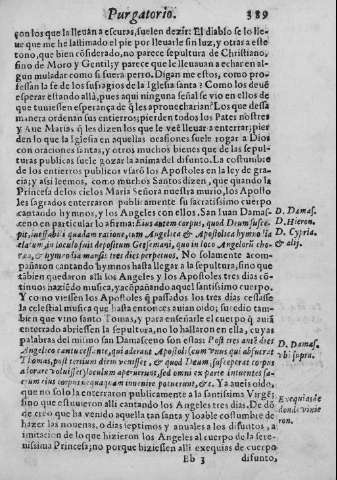 Purgatorio. 389
con los que la lleuan a escuras, suelen dezir: El diablo se lo lle
ue que me ha lastimado el pie por lleuarle sin luz, y otras a este
tono, que bien cōsiderado, no parece sepultura de Christiano,
sino de Moro y Gentil; y parece que le lleuauan a echar en al-
gun muladar como si fuera perro. Digan me estos, como pro-
fessan la fe de los sufragios de la Iglesia santa? Como los deuē
esperar estando allà, pues aqui ninguna señal se vio en ellos de
que tuuiessen esperança de q̃ les aprouecharian? Los que dessa
manera ordenan sus entierros; pierden todos los Pater nostres
y Aue Marias q̃ les dizen los que le veē lleuar a enterrar; pier
den lo que la Iglesia en aquellas ocasiones suele rogar a Dios
con oraciones santas, y otros muchos bienes que de las sepul-
turas publicas suele gozar la anima del difunto. La costumbre
de los entierros publicos vsarō los Apostoles en la ley de gra-
cia; y assi leemos, como muchos Santos dizen, que quando la
Princesa de los cielos Maria Señora nuestra murio, los Aposto
les sagrados enterraron publicamente su sacratissimo cuerpo
cantando hymnos, y los Angeles con ellos, San Iuan Damas-
ceno en particular lo afirma: Eius autem corpus, quod Deum susce-
pit, ineffabili quadam ratione, cum Angelica & Apostolica hymnodia
elatum, in loculo fuit depositum Gethsemani, quo in loco Angelorū cho-
rea, & hymnodia mansit tres dies perpetuos. No solamente acom-
pañaron cantando hymnos hasta llegar a la sepultura, sino que
tābien quedaron alli los Angeles y los Apostoles tres dias cō-
tinuos haziēdo musica, y acōpañando aquel santissimo cuerpo.
Y como viessen los Apostoles q̃ passados los tres dias cessasse
la celestial musica que hasta entonces auian oido; sucedio tam-
bien que vino santo Tomas, y para enseñarle el cuerpo q̃ auiā
enterrado abriessen la sepultura, no lo hallaron en ella, cuyas
palabras del mismo san Damasceno son estas: Post tres autē dies
Angelico cantu cessante, qui aderant Apostoli (cum vnus qui abfuerat
Thomas, post tertium diem venisset, & quod Deum susceperat corpus
adorare voluisset) loculum aperuerunt, sed omni ex parte inuentes sa-
crum eius corpus nequaquam inuenire potuerunt, &c. Ya aueis oido,
que no solo la enterraron publicamente a la santissima Virgē;
sino que estuuieron alli cantando los Angeles tres dias. De dō
de creo que ha venido aquella tan santa y loable costumbre de
hazer las nouenas, o dias septimos y anuales a los difuntos, a
imitacion de lo que hizieron los Angeles al cuerpo de la sere-
nissima Princesa; no porque hiziessen alli exequias de cuerpo
Bb 3 difunto,
D. Damas.
D. Hieron.
D. Cypria.
& alij.
D. Damas.
vbi supra.
Exequias de
donde vinie
ron.